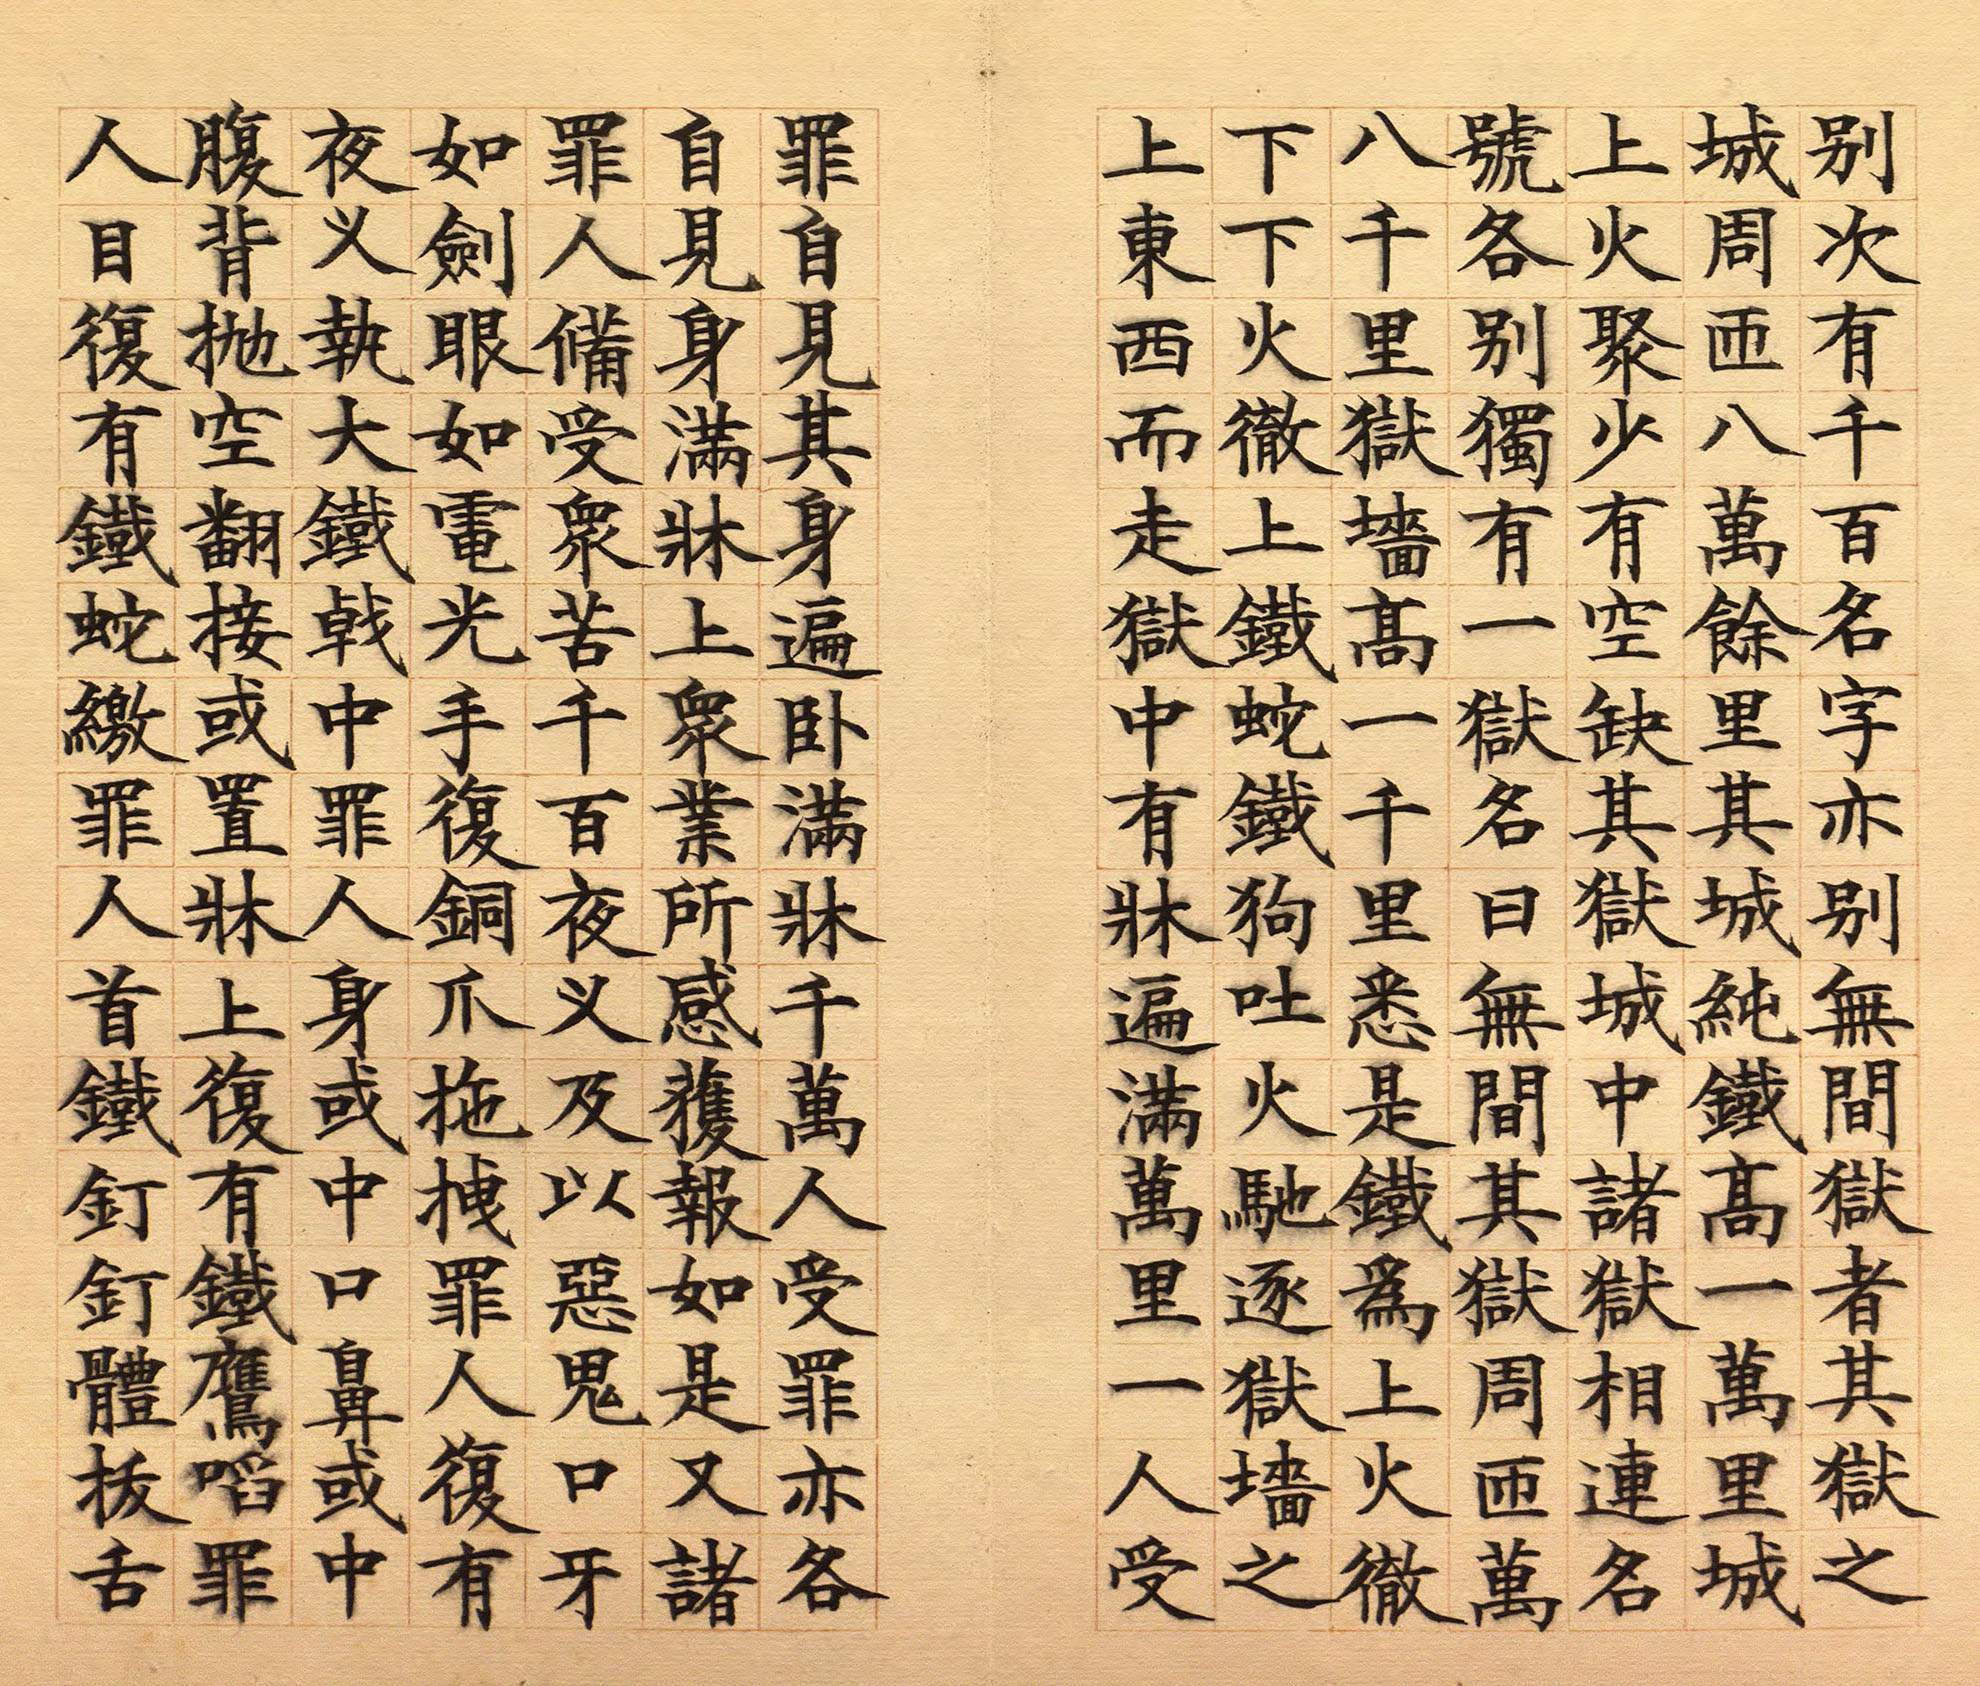 別次有千百名字亦別無間獄者其獄之
城周匝八萬餘里其城純鐵高一萬里城
上火聚少有空缺其獄城中諸獄相連名
號各別獨有一獄名曰無間其獄周匝萬
八千里獄墻高一千里悉是鐵為上火徹
下下火徹上鐵蛇鐵狗吐火馳逐獄墻之
上東西而走獄中有牀遍滿萬里一人受
罪自見其身遍卧滿牀千萬人受罪亦各
自見身滿牀上眾業所感獲報如是又諸
罪人備受眾苦千百夜义及以惡鬼口牙
如劍眼如電光手復銅爪拖拽罪人復有
夜义執大鐵戟中罪人身或中口鼻或中
腹背拋空翻接或置牀上復有鐵鷹啗罪
人目復有鐵蛇繳罪人首鐵釘釘體拔舌